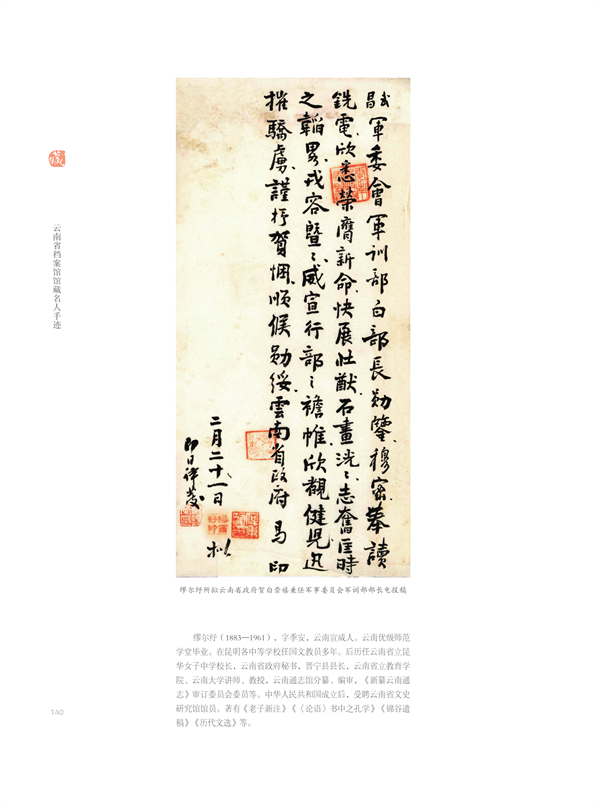 武昌軍委會軍訓部白部長勋鑒穆密奉讀
銑電欣悉榮膺新命快展壯猷石畫洸ミ志奮匡時
之韜畧戎容暨ミ威宣行部ミ襜帷欣觀健児迅
摧驕虜謹抒賀悃順候勋綏雲南省政府馬印
二月二十一日
即日譯發
拟
藏
云南省档案馆馆藏名人手迹
缪尔纾所拟云南省政府贺白崇禧兼任军事委员会军训部部长电报稿
缪尔纾（1883—1961），字季安，云南宣威人。云南优级师范
学堂毕业。在昆明各中等学校任国文教员多年。后历任云南省立昆
华女子中学校长，云南省政府秘书，晋宁县县长，云南省立教育学
院、云南大学讲师、教授，云南通志馆分纂、编审，《新纂云南通
志》审订委员会委员等。中华人民共和国成立后，受聘云南省文史
研究馆馆员。著有《老子新注》《〈论语〉书中之孔学》《锦谷遗
稿》《历代文选》等。
140